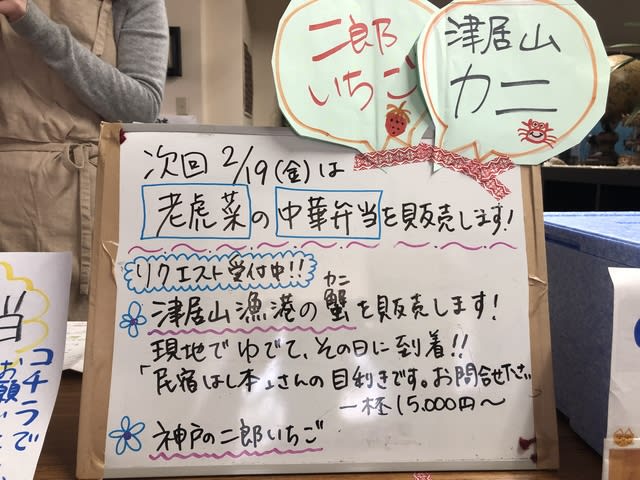 二郎
いちご
津居山
カニ
次回 2/19(金)は
老虎菜の中華弁当を販売します!
リクエスト受付中!!
津居山漁港の蟹を販売します!
カニ
現地でゆでて、その日に到着!!
「民宿はし本」さんの目利きです。お問合せ下さい
一杯15,000円〜
神戸の二郎いちご
コチラで